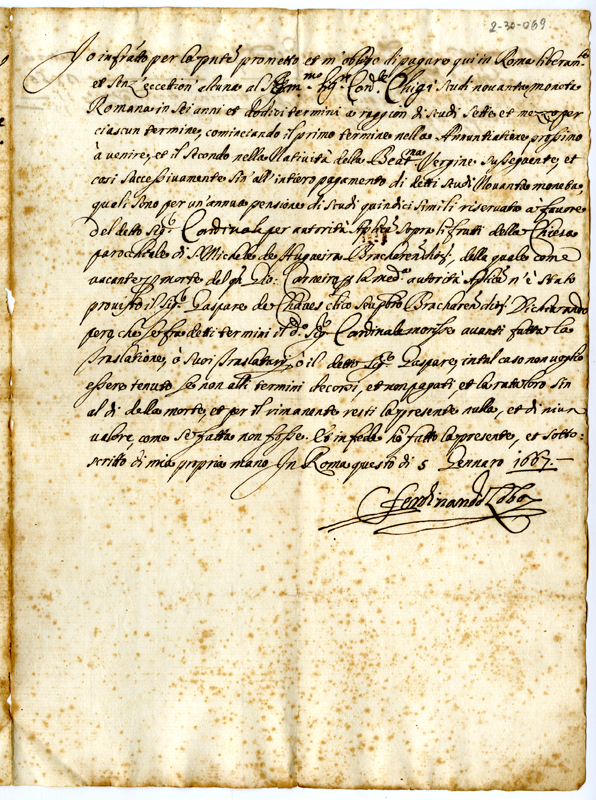 2-30-069
Io infr̃atto per la pn̄te prometto et m'obligo di pagare qui in Roma liberam.te
et senz'eccetion' alcuna al Sig.r Card.le Chigi scudi novanta moneta
Romana in sei anni et dodici termini à raggion di scudi sette et mezzo per
ciascun termine, cominciando il primo termine nella Annuntiatione prossimo
à venire, et il secondo nella Natività della Beat.ma Vergine sussequente, et
così successivamente sin' all'intiero pagamento di detti scudi Novanta moneta,
quali sono per un'annua pensione di scudi quindici simili riservata à favore
del detto Sig.r Cardinale per autorità Apl̃ica sopra li frutti della Chiesa
parochiale di S. Michele de Bracharen̄ dioc., della quale come
vacante p morte del q.m Gio: Carneiro p la med.a autorità Apl̃ica n'è stato
provisto il Sig.r Gaspare de Chaves clico Bracharen̄ dioc. Dichiarando
però, che se fra detti termini il d.o Sig.r Cardinale morisse avanti fatta la
traslatione, ò suoi traslatarij, ò il detto Sig.r Gaspare, in tal caso non voglio
essere tenuto se non alli termini decorsi, et non pagati, et la rata loro sin
al dì della morte, et per il rimanente resti la presente nulla, et di niun
valore, come se fatta non fosse. Et in fede hò fatto la presente, et sotto:
scritto di mia propria mano In Roma questo dì 5 Gennaro 1667.
Ferdinando Lobo